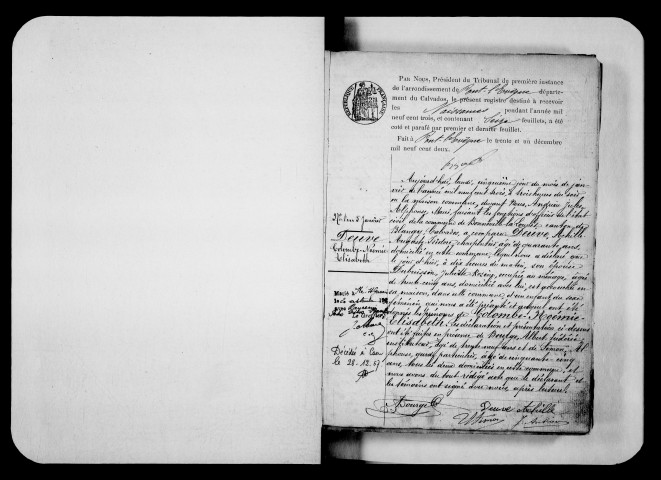 PAR NOUS, Président du Tribunal de première instance
de l'arrondissement de Pont l'Evêque départe-
ment du Calvados, le présent registre destiné à recevoir
les Naissances pendant l'année mil
neuf cent trois, et contenant Seize feuillets, a été
coté et parafé par premier et dernier feuillet.
Fait à Pont l'Evêque le trente et un décembre
mil neuf cent deux.
RÉPUBLIQUE FRANÇAISE
N° 1 du 5 Janvier
Deuve
Colombe-Noémie
Elisabeth
Marié à
le
avec
Le Greffier,
Décédée à Caen
le 28.12.67
Aujourd'hui, lundi, cinquième jour du mois de jan-
vier de l'année mil neuf cent trois, à trois heures du soir
en la maison commune, devant nous,
Alphonse, Maire, faisant les fonctions d'officier de l'état
civil de la commune de Bonneville la Louvet, canton de
Blangy, Calvados, a comparu Deuve, Achille
Auguste Isidor, âgé de quarante ans,
domicilié en cette commune, lequel nous a déclaré que
le jour d'hui, à dix heures du matin, son épouse
Dubuisson, occupée au ménage, âgée
de trente cinq ans, domiciliée avec lui, est accouchée en
sa maison, dans cette commune, d'un enfant du sexe
féminin, qui nous a été présenté et auquel ont été
donnés les prénoms de Colombe-Noémie
Elisabeth. Les déclaration et présentation ci dessus
ont été faites en présence de Bourge, Albert
instituteur, âgé de ans et de Al-
phonse, garde particulier, âgé de cinquante cinq
ans, tous les deux domiciliés en cette commune, et
nous avons du tout rédigé acte que le déclarant et
les témoins ont signé avec nous, après lecture.
A Bourge
Deuve Achille